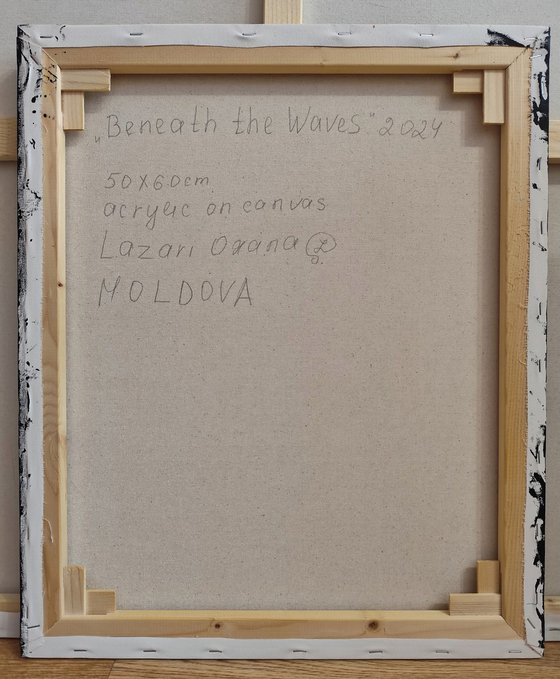 „Beneath the Waves" 2024
50x60cm
acrylic on canvas
Lazari Oxana
MOLDOVA